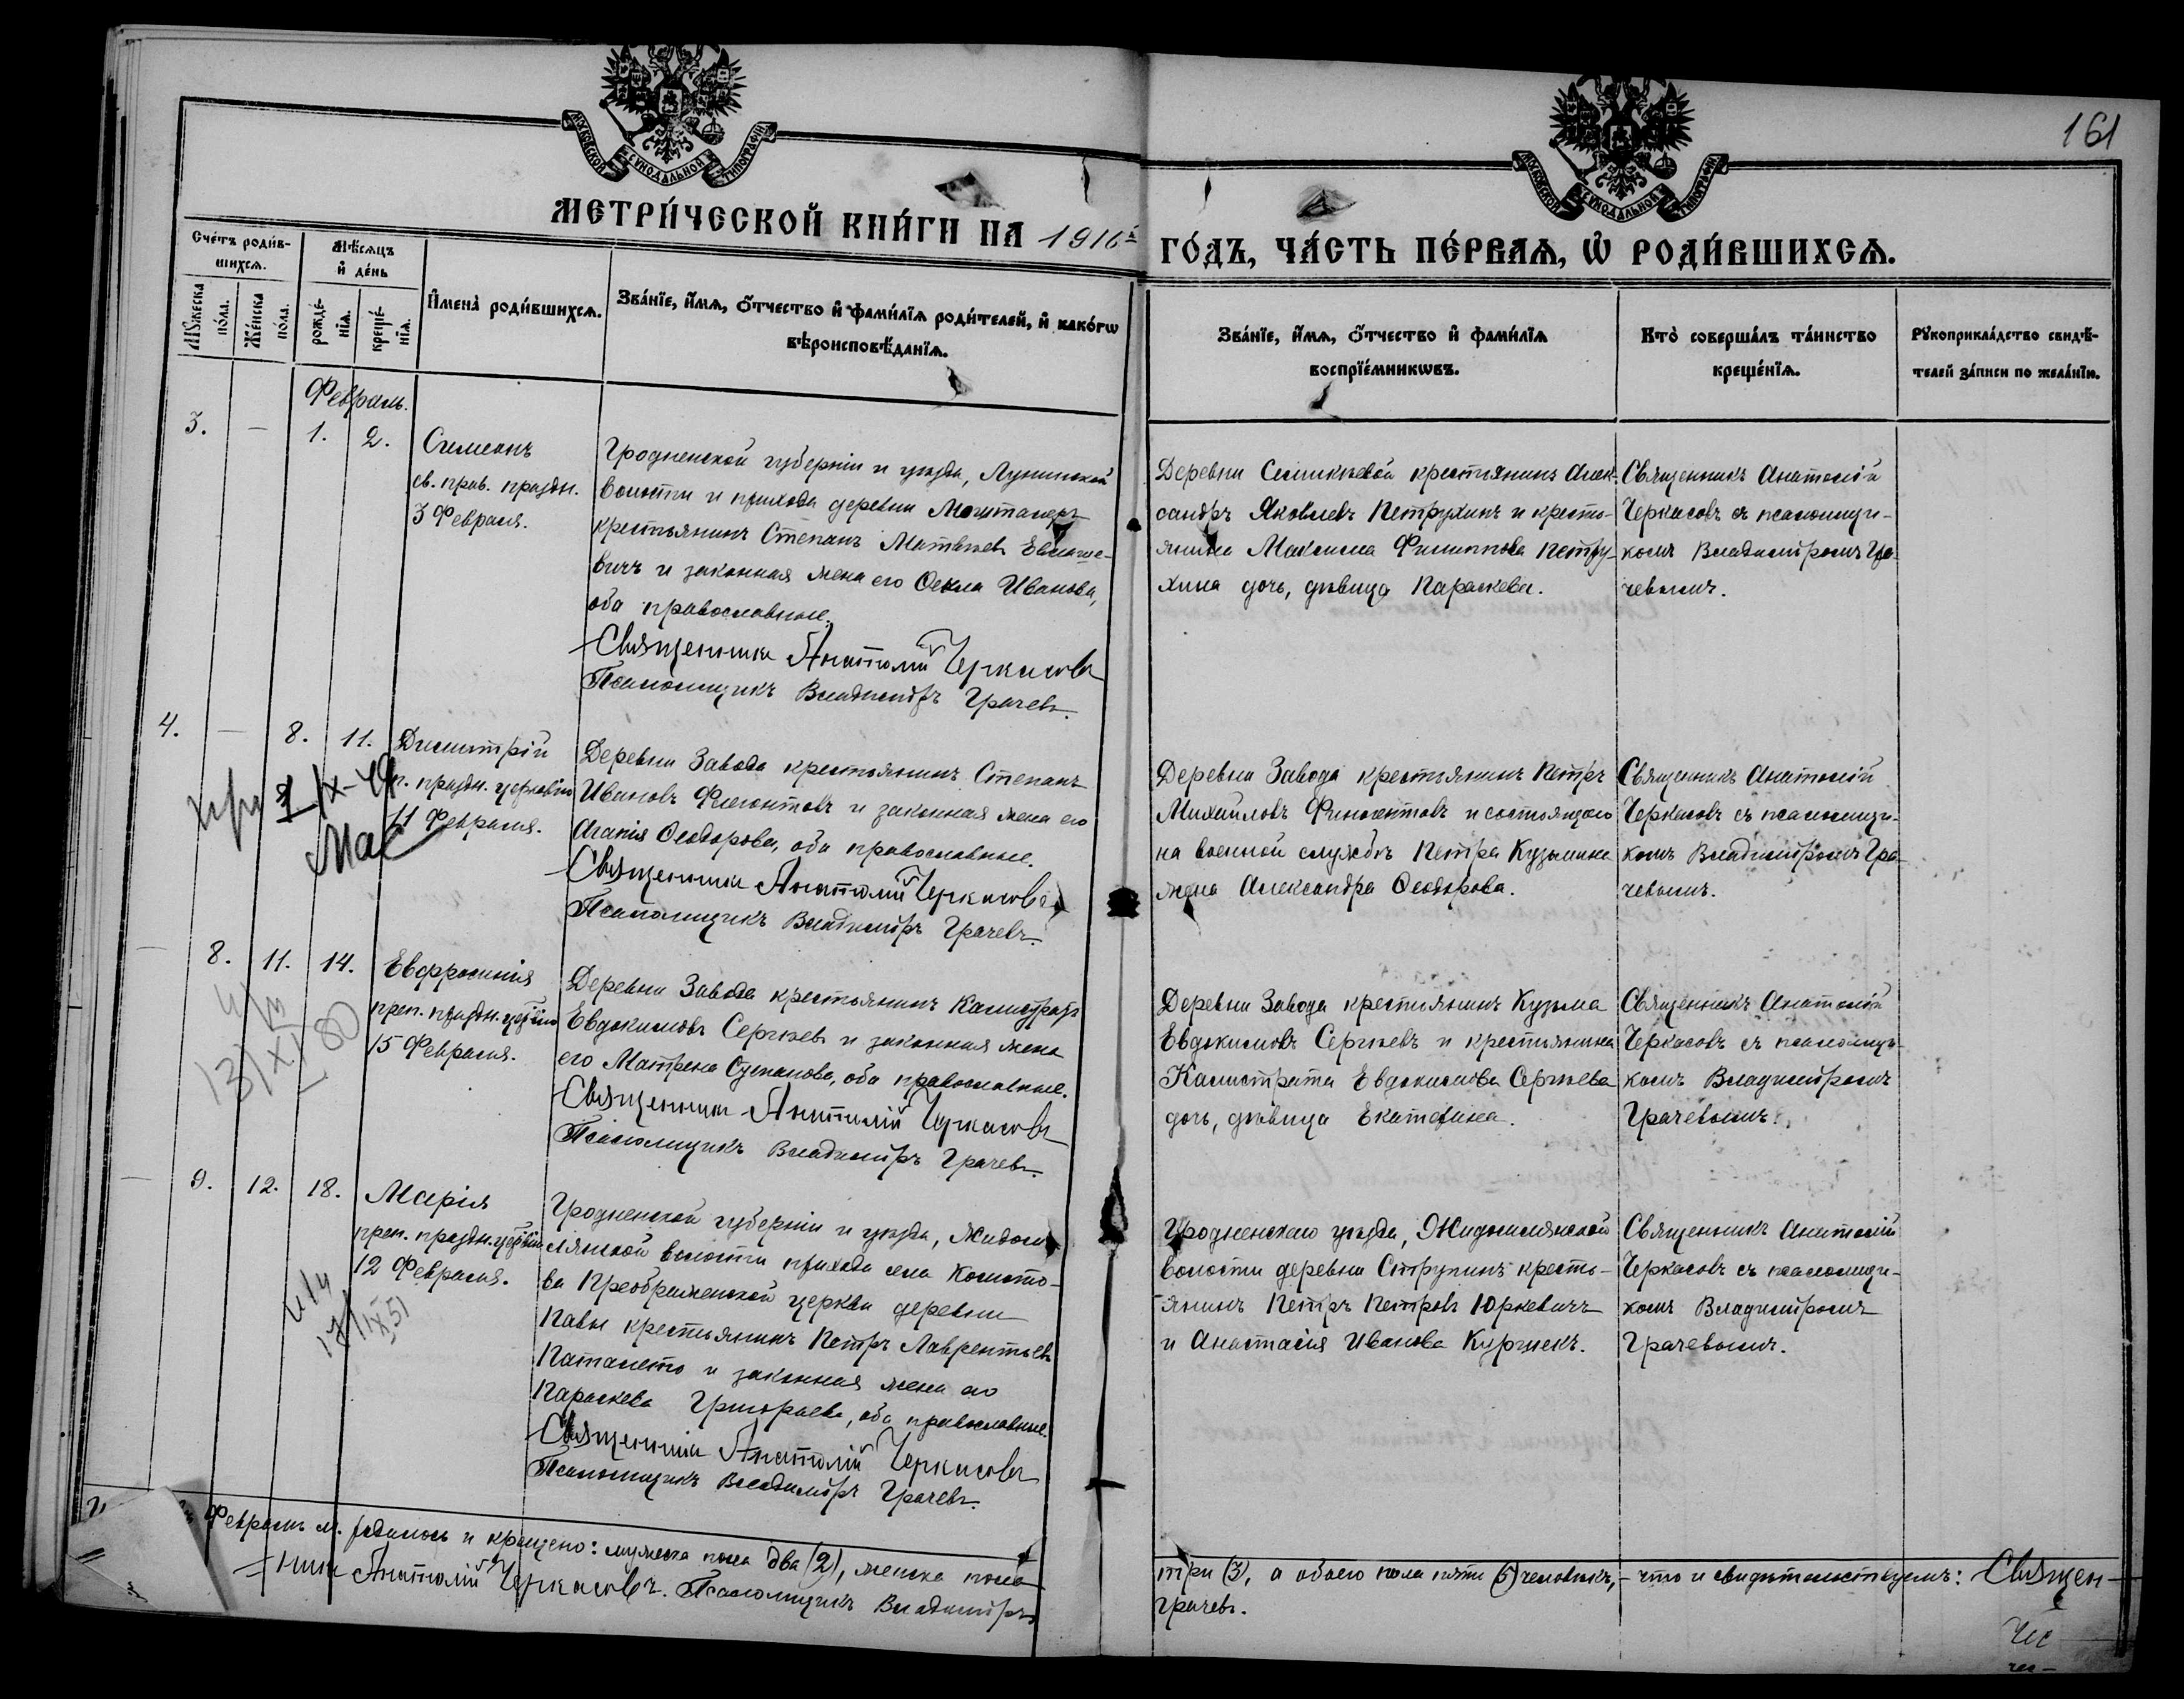 МОСКОВСКОЙ СУНОДАЛЬНОЙ ТИПОГРАФІИ
МОСКОВСКОЙ СУНОДАЛЬНОЙ ТИПОГРАФІИ
161
МЕТРИ́ЧЕСКОЙ КНИ́ГИ НА 1916й
ГО́ДЪ, ЧА́СТЬ ПЕ́РВАѦ, Ѡ҆ РОДИ́ВШИХСѦ.
Сче́тъ роди́в-
шихсѧ.
Мѣ́сѧцъ
и҆ де́нь
Мꙋ́жеска
по́ла.
Же́нска
по́ла.
рожде́-
нїѧ.
креще́-
нїѧ.
И҆мена̀ роди́вшихсѧ.
Зва́нїе, и҆́мѧ, ѻ҆́тчество и҆ фами́лїѧ роди́телей, и҆ како́гѡ
вѣроисповѣ́данїѧ.
Зва́нїе, и҆́мѧ, ѻ҆́тчество и҆ фами́лїѧ
воспрїе́мникѡвъ.
Кто̀ соверша́лъ та́инство
креще́нїѧ.
Рꙋкоприкла́дство свидѣ́-
телей за́писи по жела́нїю.
Февраль.
3. — 1. 2.
Симеонъ
св. прав. праздн.
3 Февраля.
Гродненской губерніи и уѣзда, Лунинской
волости и прихода деревни
крестьянинъ Степанъ Матвѣевъ
вичъ и законная жена его Ѳекла Иванова,
оба православные.
Священникъ Анатолій Черкасовъ
Псаломщикъ Владиміръ Грачевъ.
Деревни Селикѣевой крестьянинъ Алек-
сандръ Яковлевъ Петрухинъ и кресть-
янина Максима Филиппова Петру-
хина дочь, дѣвица Параскева.
Священникъ Анатолій
Черкасовъ съ псаломщи-
комъ Владиміромъ Гра-
чевымъ.
4. — 8. 11.
Димитрій
п. праздн. церковію
11 Февраля.
Деревни Завода крестьянинъ Степанъ
Ивановъ Филонтовъ и законная жена его
Агапія Ѳеодорова, оба православные.
Священникъ Анатолій Черкасовъ
Псаломщикъ Владиміръ Грачевъ.
Деревни Завода крестьянинъ Петръ
Михайловъ Финогентовъ и состоящаго
на военной службѣ Петра Кузьмина
жена Александра Ѳеодорова.
Священникъ Анатолій
Черкасовъ съ псаломщи-
комъ Владиміромъ Гра-
чевымъ.
— 8. 11. 14.
Евфросинія
преп. праздн. церковію
15 Февраля.
13/XI 80
Деревни Завода крестьянинъ Калистратъ
Евдокимовъ Сергѣевъ и законная жена
его Матрена Степанова, оба православные.
Священникъ Анатолій Черкасовъ
Псаломщикъ Владиміръ Грачевъ.
Деревни Завода крестьянинъ Кузьма
Евдокимовъ Сергѣевъ и крестьянина
Калистрата Евдокимова Сергѣева
дочь, дѣвица Екатерина.
Священникъ Анатолій
Черкасовъ съ псаломщи-
комъ Владиміромъ
Грачевымъ.
— 9. 12. 18.
Марія
преп. праздн. церковію
12 Февраля.
17/IX 51
Гродненской губерніи и уѣзда, Жидом-
лянской волости прихода села Комото-
ва Преображенской церкви деревни
Павы крестьянинъ Петръ Лаврентьевъ
и законная жена его
Параскева Григорьева, оба православные.
Священникъ Анатолій Черкасовъ
Псаломщикъ Владиміръ Грачевъ.
Гродненскаго уѣзда, Жидомлянской
волости деревни Струпинъ кресть-
янинъ Петръ Петровъ Юркевичъ
и Анастасія Иванова
Священникъ Анатолій
Черкасовъ съ псаломщи-
комъ Владиміромъ
Грачевымъ.
Февралѣ м. родилось и крещено: мужеска пола два (2), женска пола
три (3), а обоего пола пять (5) человѣкъ, – что и свидѣтельствуемъ: Священ-
никъ Анатолій Черкасовъ. Псаломщикъ Владиміръ
Грачевъ.